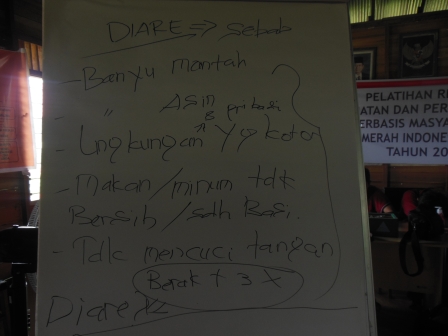 DIARE => sebab
- Banyu mantah
- " Asin
pribasi
- Lngkungan Yg kotor
- Makan/minum tdk
Bersih / sdh Basi.
- Tdk mencuci tangan
Berak + 3 X
Diare
PELATIHAN
ATAN DAN PER
ERBASIS MASYA
MERAH INDONE
TAHUN 20